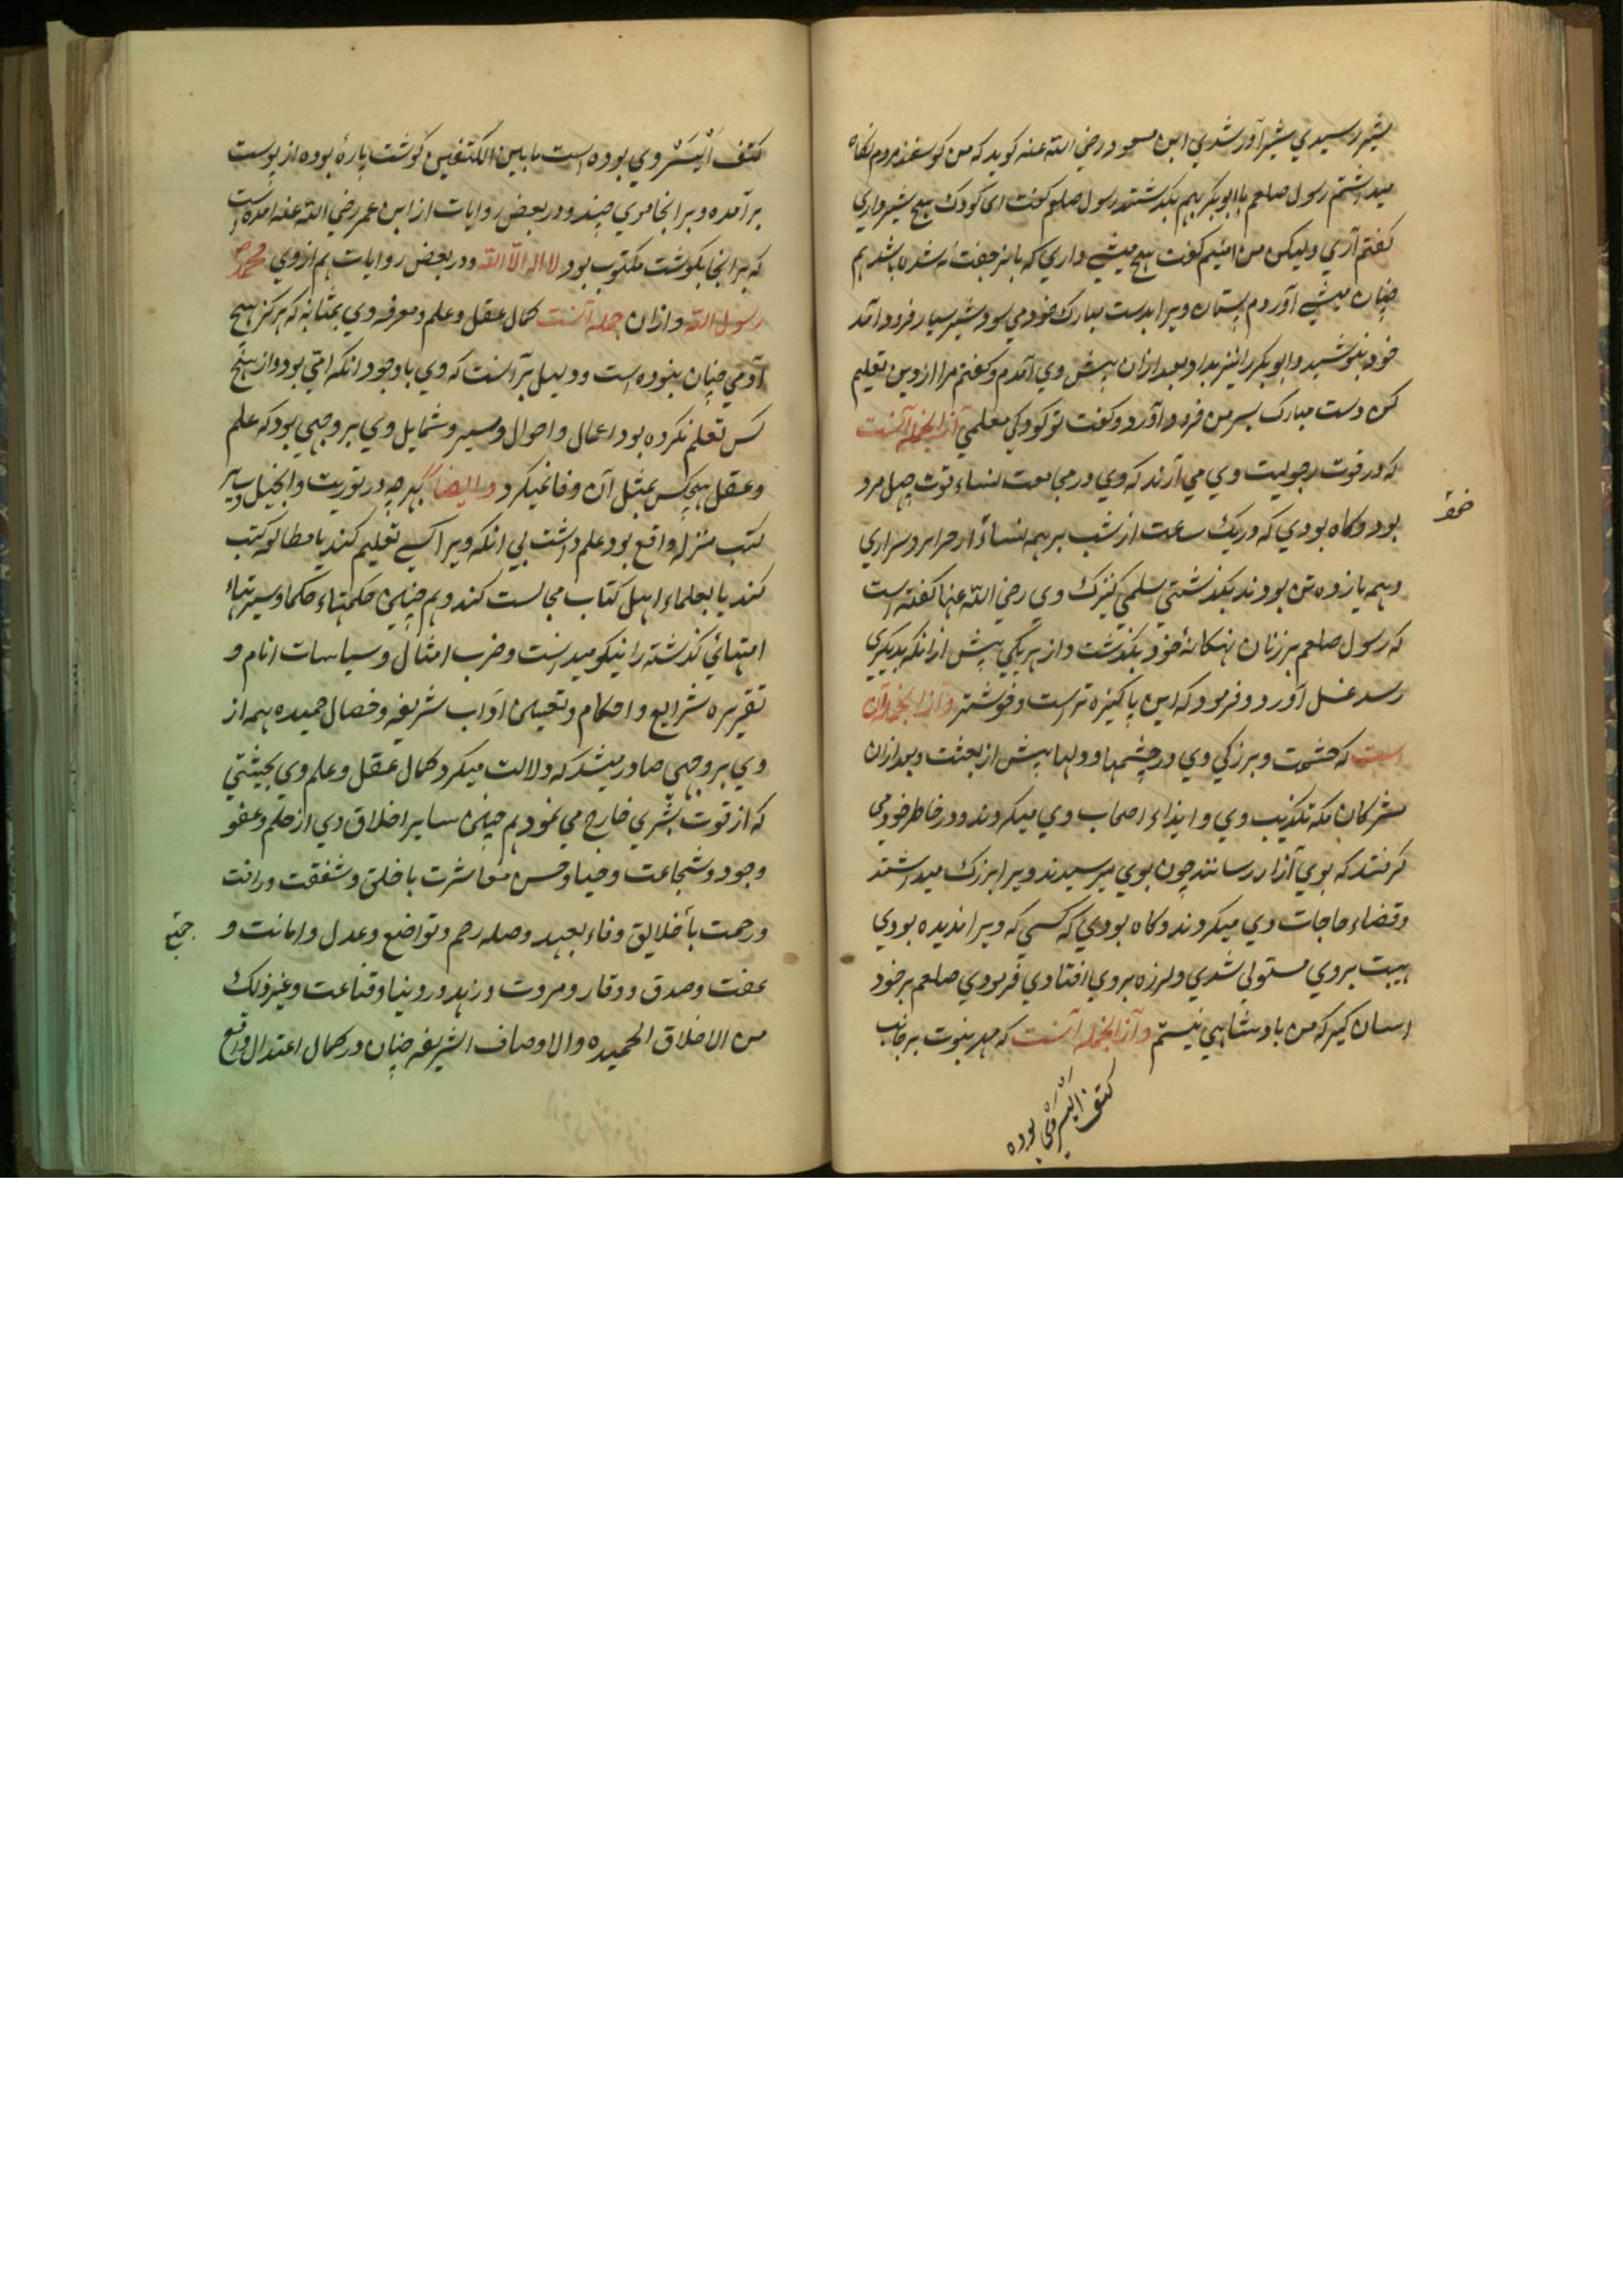 بشیر رسیدی شیر آور شدی ابن مسعود رضی الله عنه کوید که من کوسفند مردم نکاه
میداشتم رسول صلعم با ابوبکر بهم بکذشتند رسول صلعم کفت ای کودک هیچ شیر داری
کفتم آری ولیکن من امینم کفت هیچ میشی داری که با نر جفت نشده باشد هم
چنان میشی آوردم پستان ویرا بدست مبارک خود می سود شیر بسیار فرود آمد
خود بنوشید و ابوبکر را نیز بداد و بعد ازان پیش وی آمدم و کفتم مرا ازین تعلیم
کن دست مبارک بسر من فرود آورد و کفت تو کودکی معلمی و از انجمله آنست
که در قوت رجولیت وی می آرند که وی در مجامعت نساء قوت چهل مرد
بود وکاه بودی که در یک ساعت از شب بر همه نساء از حرایر و سراری
و همه یازده تن بودند بکذشتی سلمی کنیزک وی رضی الله عنها کفته است
که رسول صلعم بر زنان نهکانهٔ خود بکذشت و از هر یکی پیش از انکه بدیکری
رسد غسل آورد و فرمود که این پاکیزه تر است و خوشتر و از انجمله آن
است که حشمت و بزرکی وی در چشمها و دلها پیش از بعثت و بعد ازان
مشرکان مکه تکذیب وی و ایذاء اصحاب وی میکردند و در خاطر خود می
کرفتند که بوی آزار رسانند چون بوی میرسیدند ویرا بزرک میداشتند
و قضاء حاجات وی میکردند و کاه بودی که کسی که ویرا ندیده بودی
هیبت بر وی مستولی شدی و لرزه بر وی افتادی فرمودی صلعم بر خود
اسان کیر که من بادشاهی نیستم و از انجمله آنست که مهر نبوت بر جانب
کتف ایسر وی بوده
کتف ایسر وی بوده است ما بین الکتفین کوشت پارهٔ بوده از پوست
بر آمده و بر انجا موی چند و در بعض روایات از ابن عمر رضی الله عنه امده است
که بر انجا بکوشت مکتوب بود لا اله الا الله و در بعض روایات هم از وی محمد
رسول الله و ازان جمله آنست کمال عقل و علم و معرفه وی بمثابه که هرکز هیچ
آدمی چنان نبوده است و دلیل بر آنست که وی با وجود انکه امی بود و از هیچ
کس تعلم نکرده بود اعمال و احوال و سیر و شمایل وی بر وجهی بود که علم
و عقل هیچکس بمثل آن وفا نمیکرد و ایضا بهر چه در توریت و انجیل و سایر
کتب منزله واقع بود علم داشت بی انکه ویرا کسی تعلیم کند یا مطالعه کتب
کند یا بعلماء اهل کتاب مجالست کند و هم چنین حکمتهاء حکما و سیرتهاء
امتهای کذشته را نیکو میدانست و ضرب امثال و سیاسات انام و
تقریره شرایع و احکام و تعیین آداب شریفه و خصال حمیده همه از
وی بر وجهی صادر میشد که دلالت میکرد کمال عقل و علم وی بحیثیتی
که از قوت بشری خارج می نمود هم چنین سایر اخلاق وی از حلم و عفو
وجود و شجاعت و حیا و حسن معاشرت با خلق و شفقت و رافت
و رحمت با خلایق و فاء بعهد و صله رحم و تواضع و عدل و امانت و
عفت و صدق و وقار و مروت و زهد در دنیا و قناعت و غیر ذلک
من الاخلاق الحمیده والاوصاف الشریفه چنان در کمال اعتدال واقع